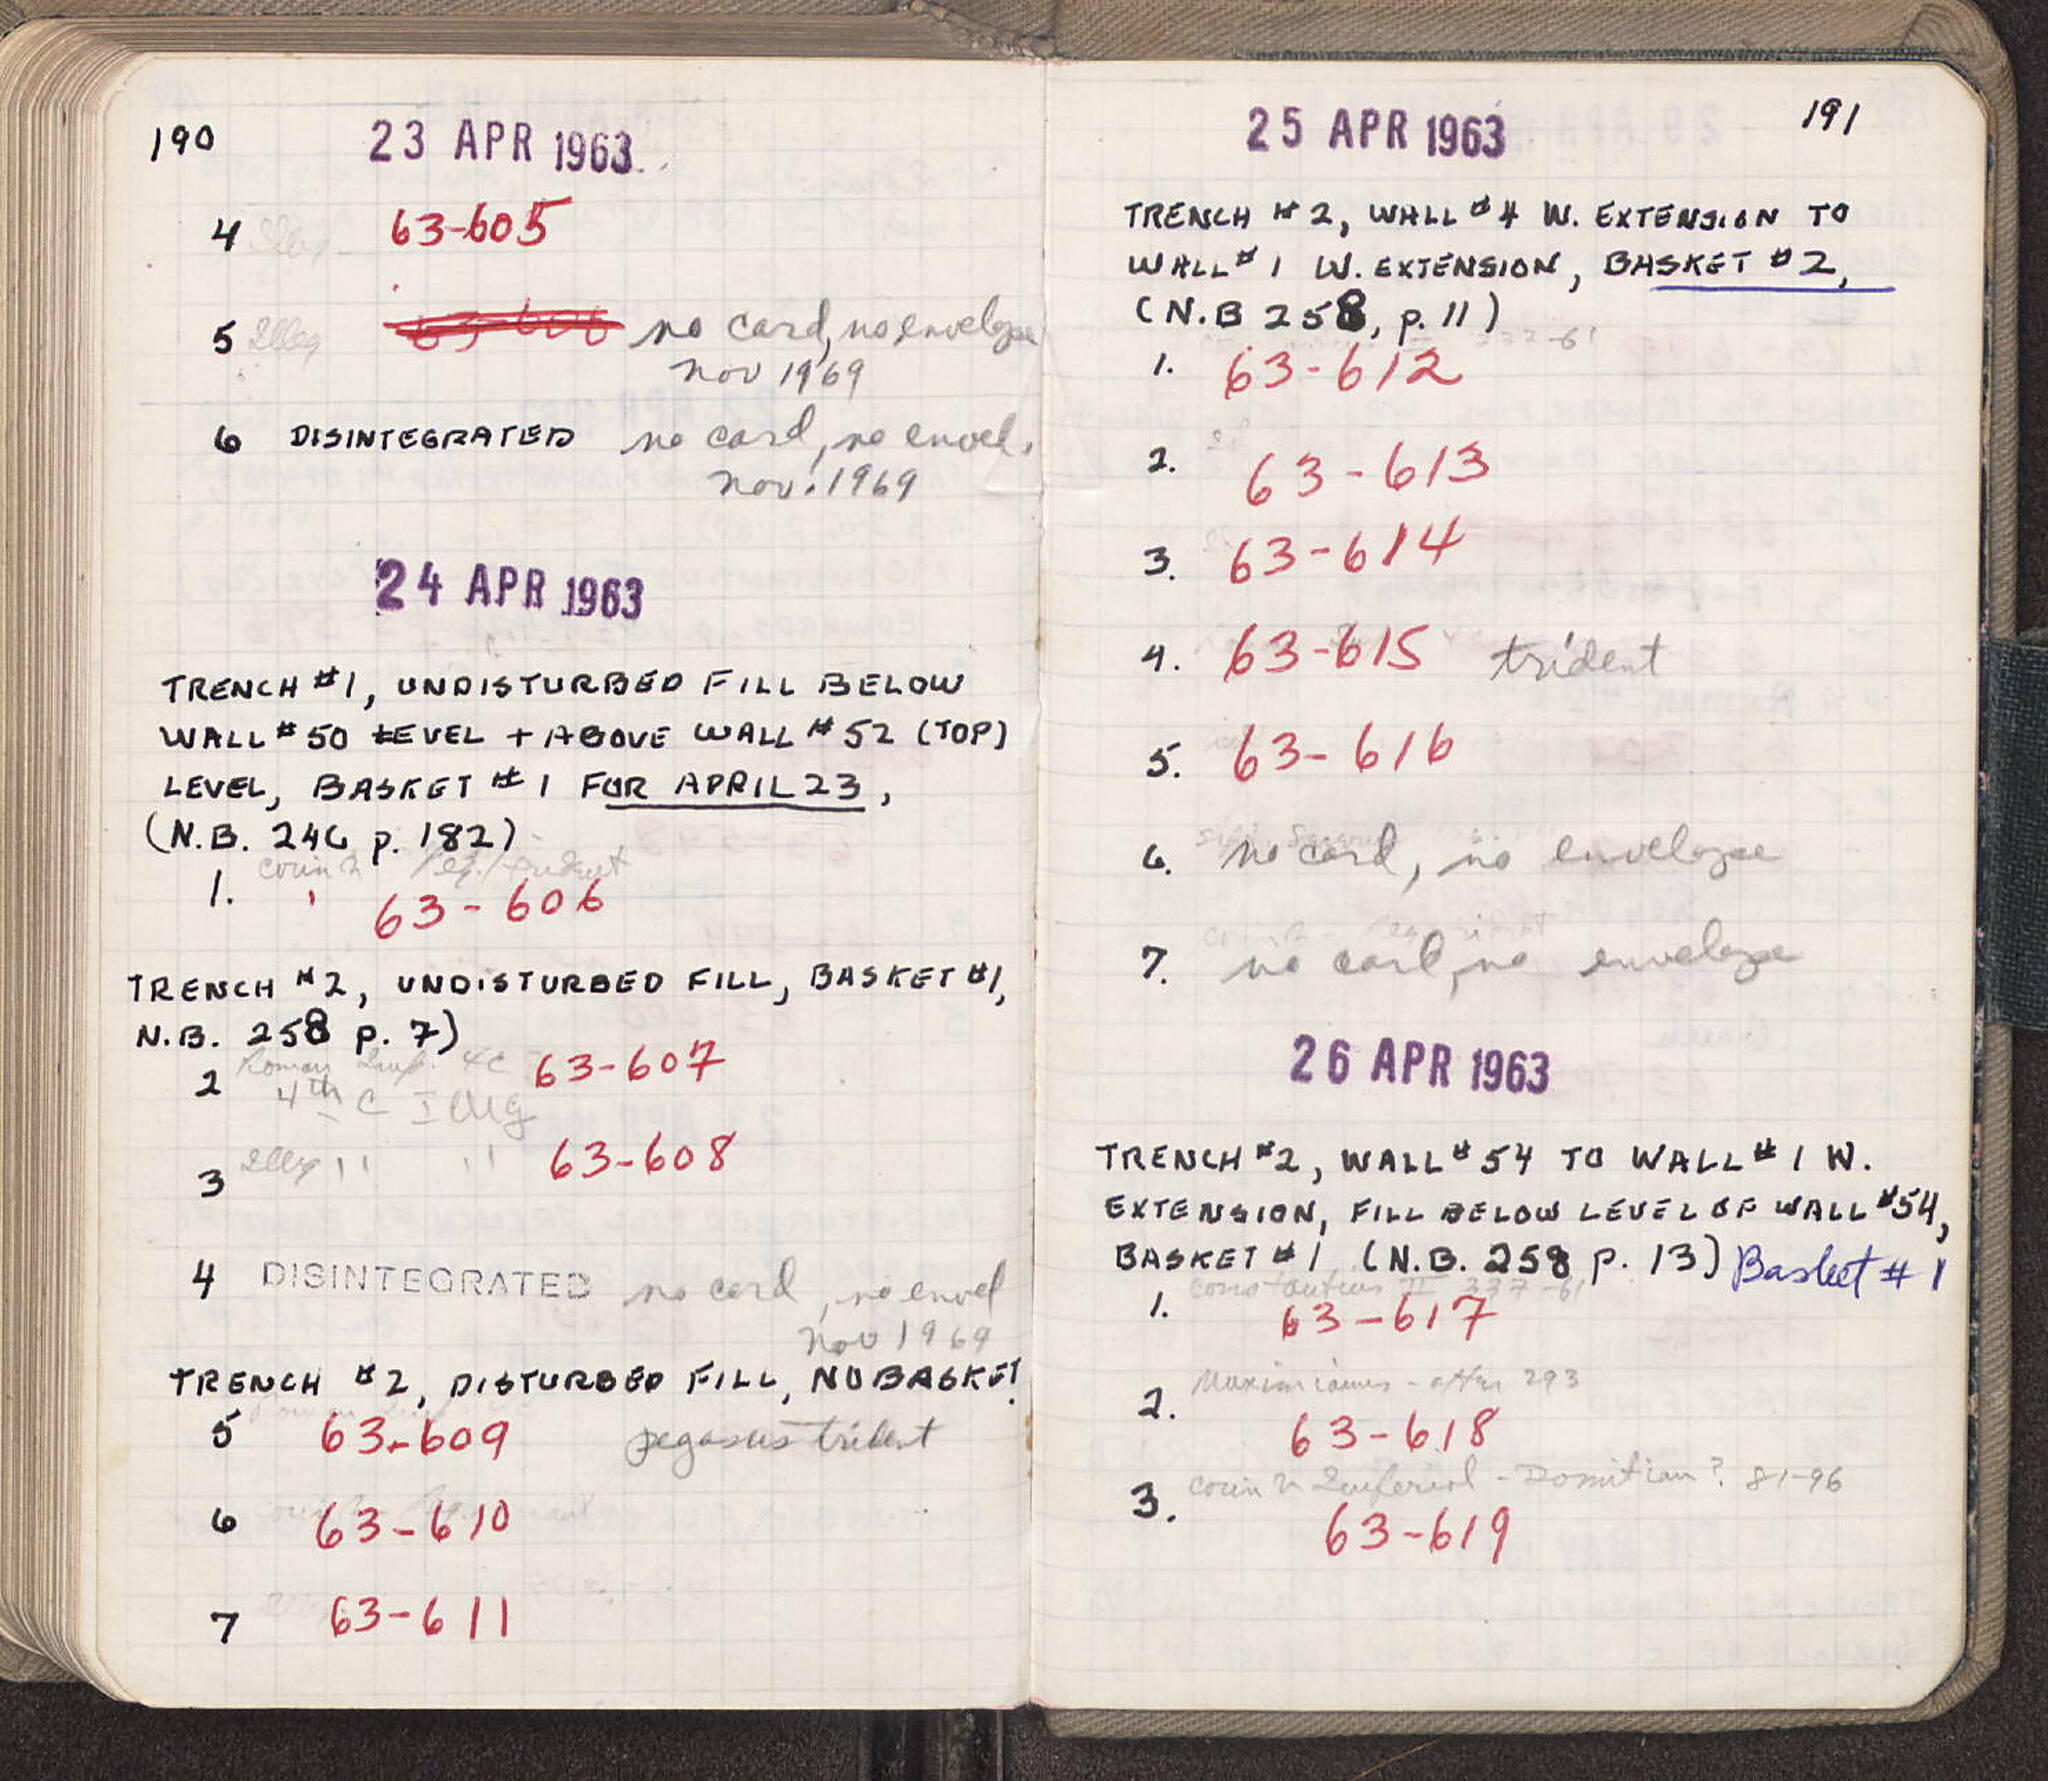 190
23 APR 1963
4 Illeg 63-605
5 Illeg 63-606 no card, no envelope
Nov 1969
6 DISINTEGRATED no card, no envel.
Nov. 1969
24 APR 1963
TRENCH #1, UNDISTURBED FILL BELOW
WALL #50 LEVEL + ABOVE WALL #52 (TOP)
LEVEL, BASKET #1 FOR APRIL 23,
(N.B. 246 p. 182)
Corinth Peg/trident
1. 63-606
TRENCH #2, UNDISTURBED FILL, BASKET #1,
N.B. 258 p. 7)
Roman Imp. 4C
2 63-607
4th C Illeg
3 Illeg " " 63-608
4 DISINTEGRATED no card, no envel
Nov 1969
TRENCH #2, DISTURBED FILL, NO BASKET
5 63-609 pegasus trident
6 63-610
7 63-611
191
25 APR 1963
TRENCH #2, WALL #4 W. EXTENSION TO
WALL #1 W. EXTENSION, BASKET #2,
(N.B 258, p. 11)
1. 63-612
2. 63-613
3. 63-614
4. 63-615 trident
5. 63-616
6. no card, no envelope
7. no card, no envelope
26 APR 1963
TRENCH #2, WALL #54 TO WALL #1 W.
EXTENSION, FILL BELOW LEVEL OF WALL #54,
BASKET #1 (N.B. 258 p. 13) Basket #1
Constantius II 337-61
1. 63-617
Maximianus - after 293
2. 63-618
Corinth Imperial - Domitian? 81-96
3. 63-619